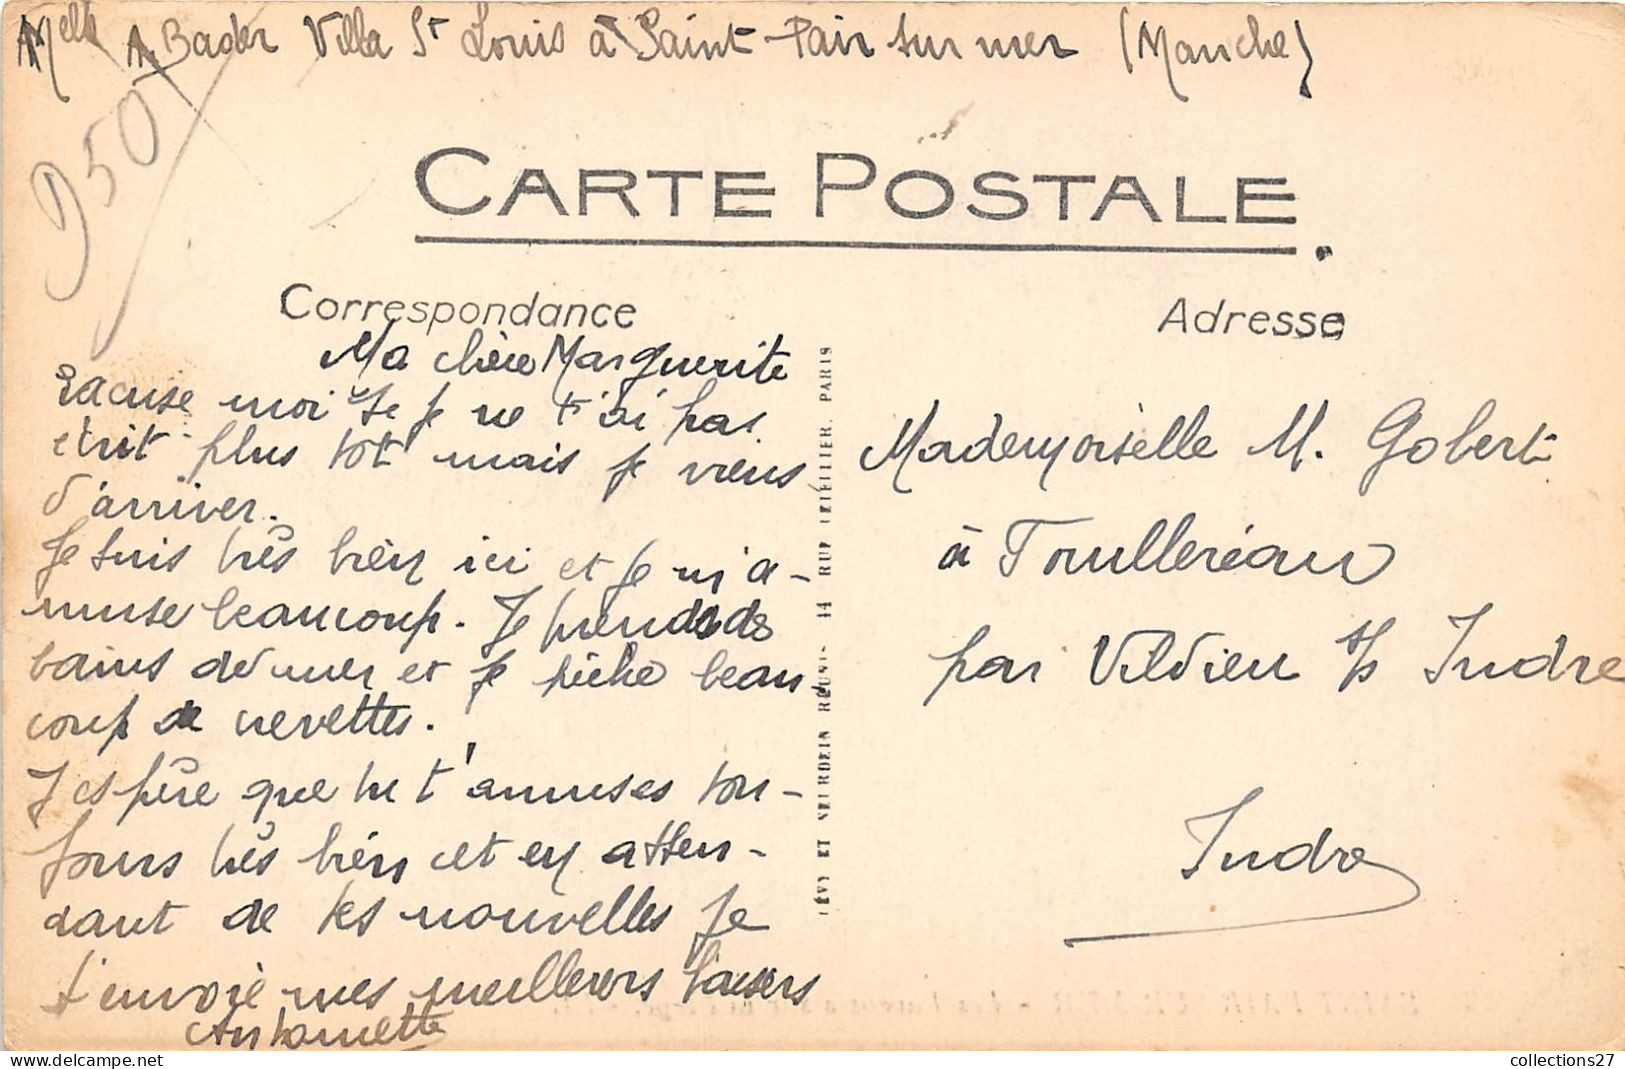 Melle A. Bader Villa St Louis à Saint-Pair sur mer (Manche)
950
CARTE POSTALE
Correspondance
Adresse
Ma chère Marguerite
Excuse moi si je ne t'ai pas
écrit plus tôt mais je viens
d'arriver.
Je suis très bien ici et je m'a-
muse beaucoup. Je prends des
bains de mer et je pêche beau-
coup de crevettes.
J'espère que tu t'amuses tou-
jours très bien et en atten-
dant de tes nouvelles je
t'envoie mes meilleurs baisers
Antoinette
LÉVY ET NEURDEIN RÉUNIS 44 RUE LETELLIER, PARIS
Mademoiselle M. Gobert
à
par Villdieu s/s Indre
Indre
collections27